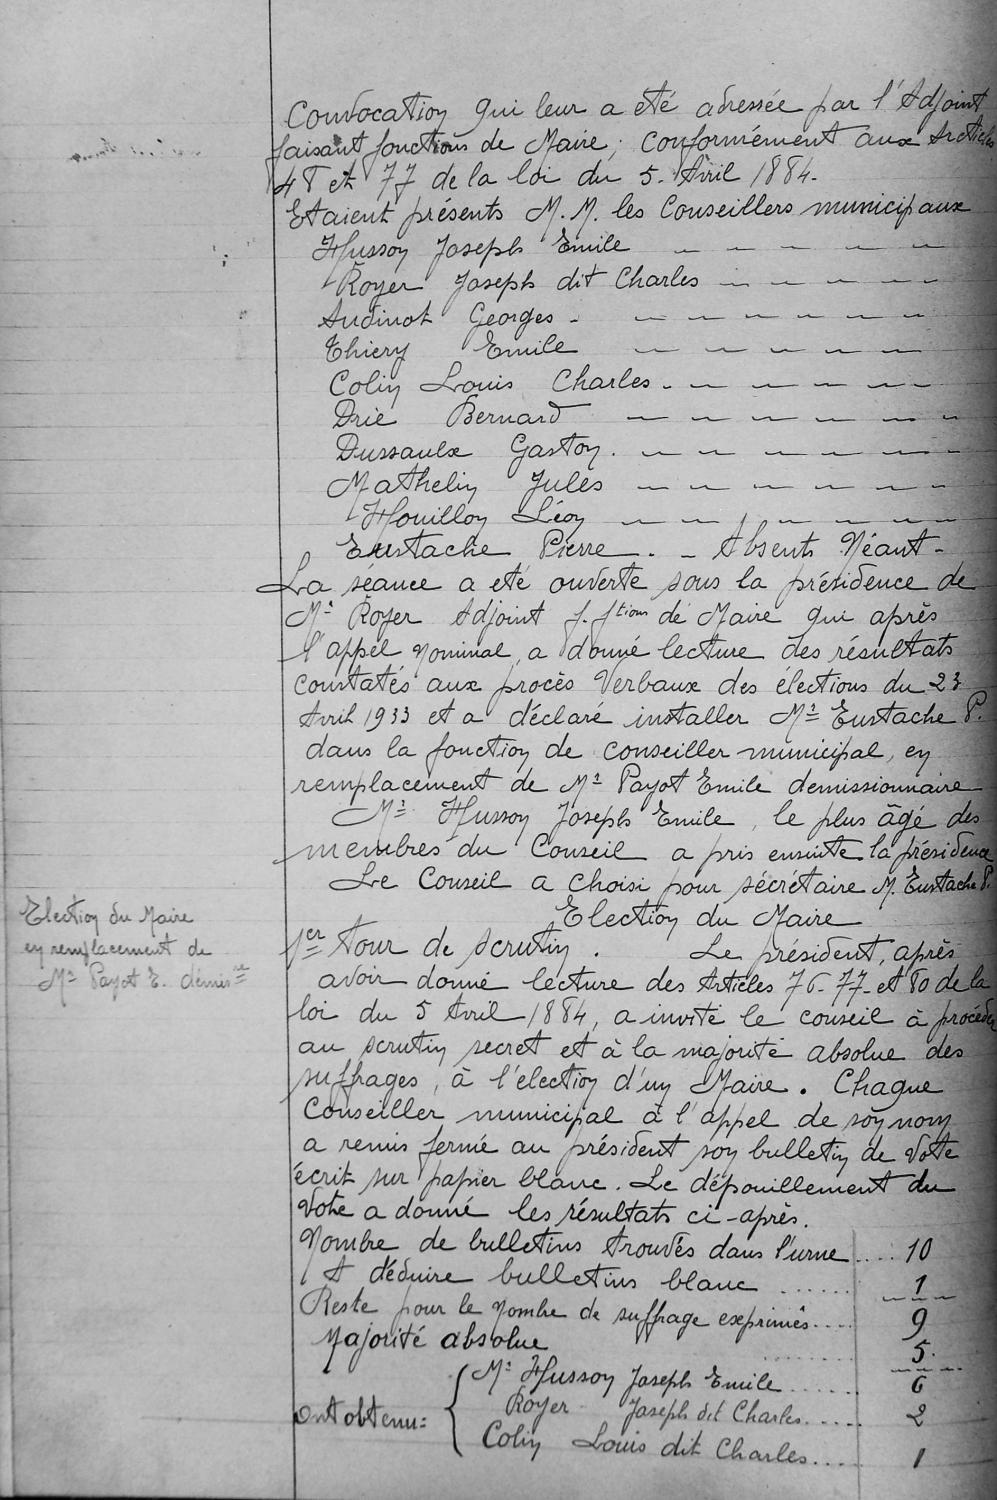 Convocation qui leur a été adressée par l'Adjoint
faisant fonctions de Maire; conformément aux Articles
48 et 77 de la loi du 5 Avril 1884.
Etaient présents M.M. les Conseillers municipaux
Husson Joseph Emile
Royer Joseph dit Charles
Audinot Georges -
Thiery Emile
Colin Louis Charles.
Drie Bernard
Dussaulx Gaston.
Mathelin Jules
Houillon Léon
Eustache Pierre. - Absents Néant -
La séance a eté ouverte sous la présidence de
Mr Royer Adjoint f. ftions de Maire qui après
l'appel nominal, a donné lecture des résultats
constatés aux procès Verbaux des élections du 23
Avril 1933 et a déclaré installer Mr Eustache P.
dans la fonction de conseiller municipal, en
remplacement de Mr Payot Emile demissionnaire
Mr Husson Joseph Emile, le plus âgé des
membres du Conseil a pris ensuite la présidence
Le Conseil a choisi pour sécrétaire M. Eustache P.
Election du Maire
Election du Maire
en remplacement de
Mr Payot E. démisre
1er Tour de scrutin. Le président, après
avoir donné lecture des Articles 76-77-et 80 de la
loi du 5 Avril 1884, a invité le conseil à procéder
au scrutin secret et à la majorité absolue des
suffrages, à l'élection d'un Maire. Chaque
Conseiller municipal à l'appel de son nom
a remis fermé au président son bulletin de vote
écrit sur papier blanc. Le dépouillement du
Vote a donné les résultats ci-après.
Nombre de bulletins trouvés dans l'urne .... 10
A déduire bulletins blanc ...... 1
Reste pour le Nombre de suffrage exprimés.... 9
Majorité absolue ........ 5.
Mr Husson Joseph Emile ...... 6
Ont obtenu: Royer Joseph dit Charles..... 2
Colin Louis dit Charles.... 1